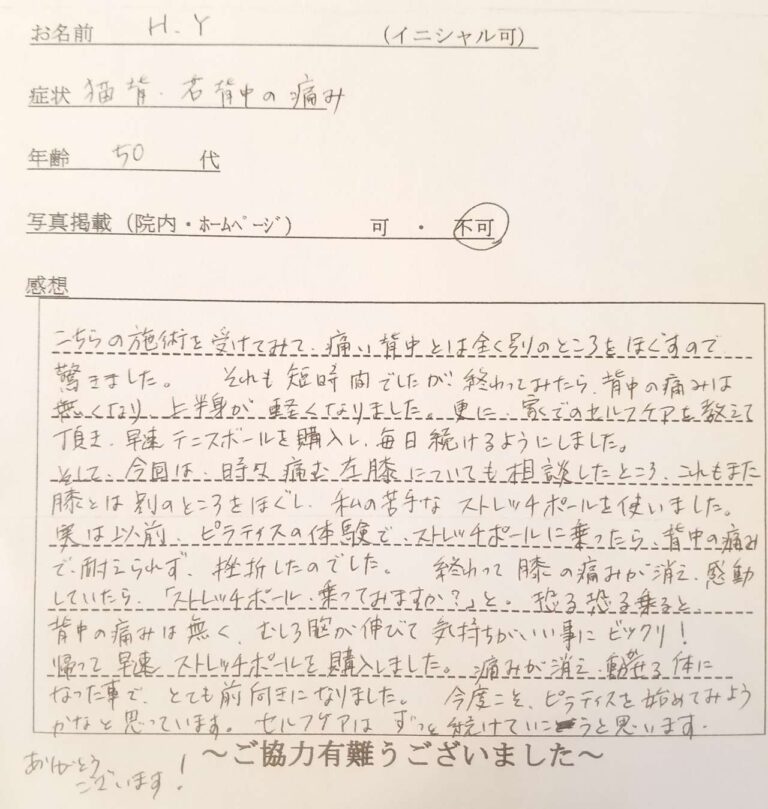 お名前 H.Y （イニシャル可）
症状 猫背、右背中の痛み
年齢 50 代
写真掲載（院内・ホームページ） 可 ・ 不可
感想
こちらの施術を受けてみて、痛い背中とは全く別のところをほぐすので
驚きました。 それも短時間でしたが、終わってみたら、背中の痛みは
無くなり、上半身が軽くなりました。更に、家でのセルフケアを教えて
頂き、早速テニスボールを購入し、毎日続けるようにしました。
そして、今回は、時々痛む左膝についても相談したところ、これもまた
膝とは別のところをほぐし、私の苦手なストレッチポールを使いました。
実は以前、ピラティスの体験で、ストレッチポールに乗ったら、背中の痛み
で、耐えられず、挫折したのでした。 終わって膝の痛みが消え、感動
していたら、「ストレッチポール、乗ってみますか？」と。恐る恐る乗ると、
背中の痛みは無く、むしろ胸が伸びて気持ちがいい事にビックリ！
帰って早速ストレッチポールを購入しました。痛みが消え、動せる体に
なった事で、とても前向きになりました。 今度こそ、ピラティスを始めてみよう
かなと思っています。セルフケアはずっと続けていこうと思います。
ありがとう
ございます！
～ご協力有難うございました～